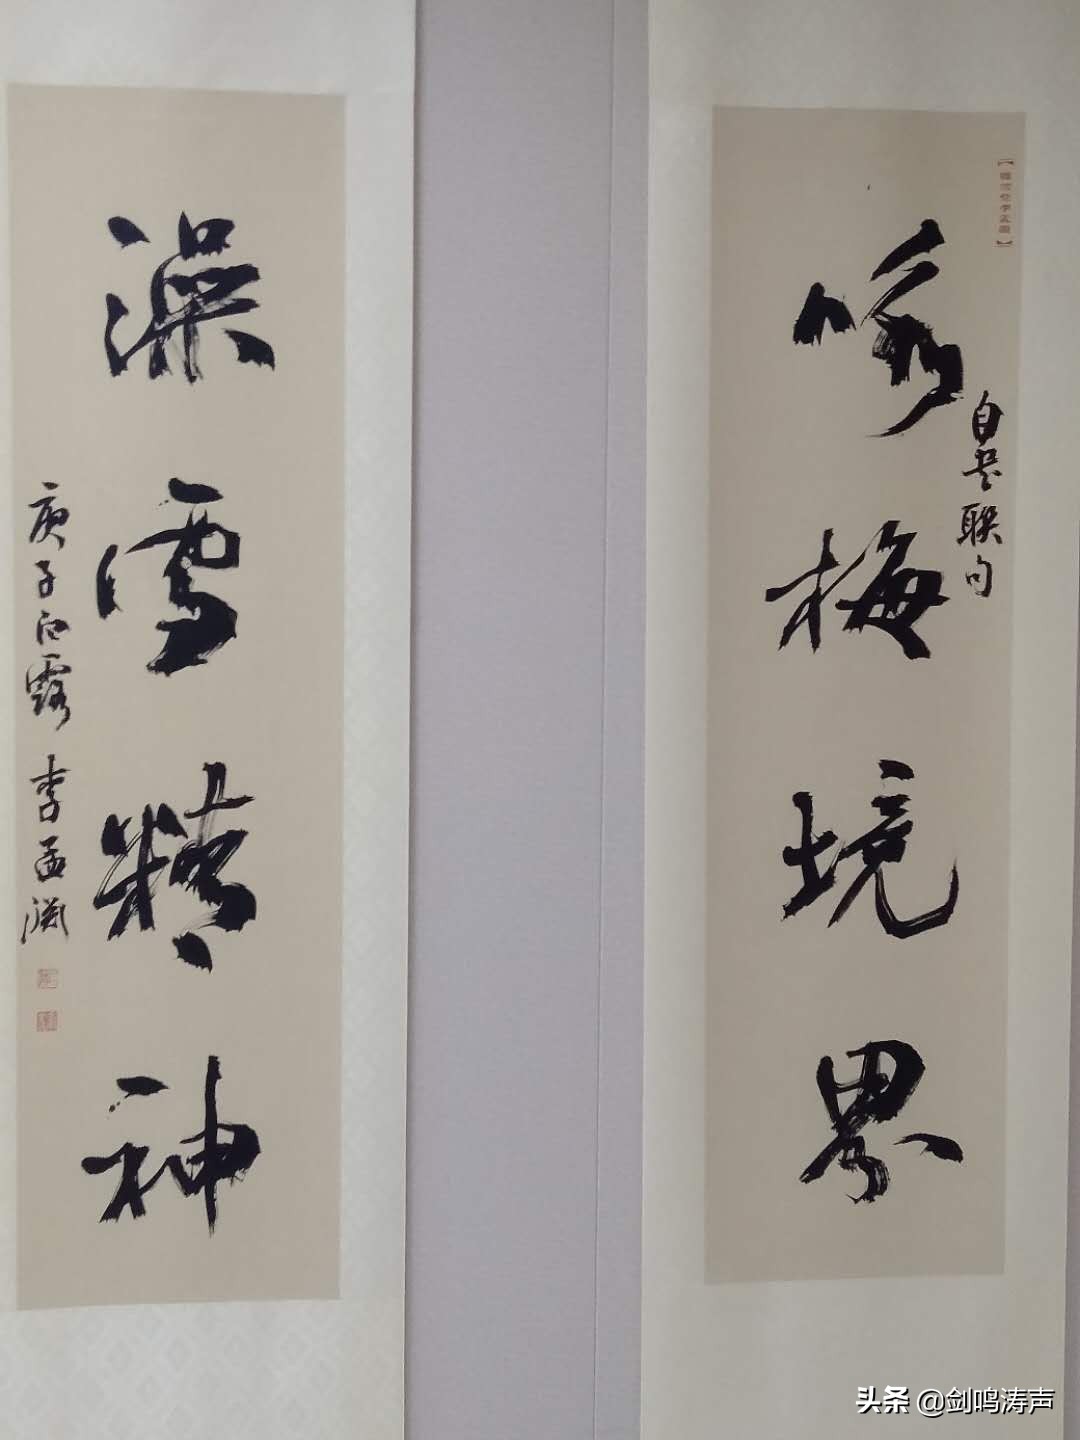 梅境界
自 联句
澡雪精神
庚子白露 李孟渊
头条 @剑鸣涛声